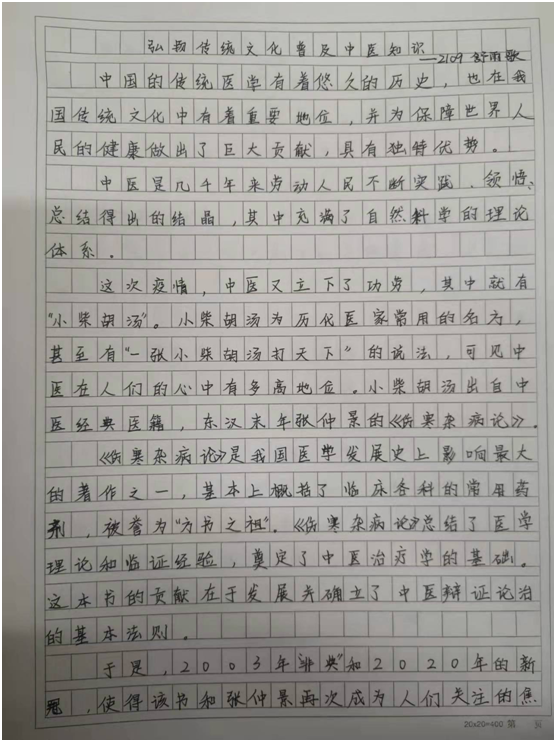 弘扬传统文化普及中医知识
——2109 舒雨歌
中国的传统医学有着悠久的历史，也在我
国传统文化中有着重要地位，并为保障世界人
民的健康做出了巨大贡献，具有独特优势。
中医是几千年来劳动人民不断实践、领悟、
总结得出的结晶，其中充满了自然科学的理论
体系。
这次疫情，中医又立下了功劳，其中就有
“小柴胡汤”。小柴胡汤为历代医家常用的名方，
甚至有“一张小柴胡汤打天下”的说法，可见中
医在人们的心中有多高地位。小柴胡汤出自中
医经典医籍，东汉末年张仲景的《伤寒杂病论》.
《伤寒杂病论》是我国医学发展史上影响最大
的著作之一，基本上概括了临床各科的常用药
剂，被誉为“方书之祖”.《伤寒杂病论》总结了医学
理论和临证经验，奠定了中医治疗学的基础。
这本书的贡献在于发展并确立了中医辩证论治
的基本法则。
于是，2003年“非典”和2020年的新
冠，使得该书和张仲景再次成为人们关注的焦
20x20=400 第 页